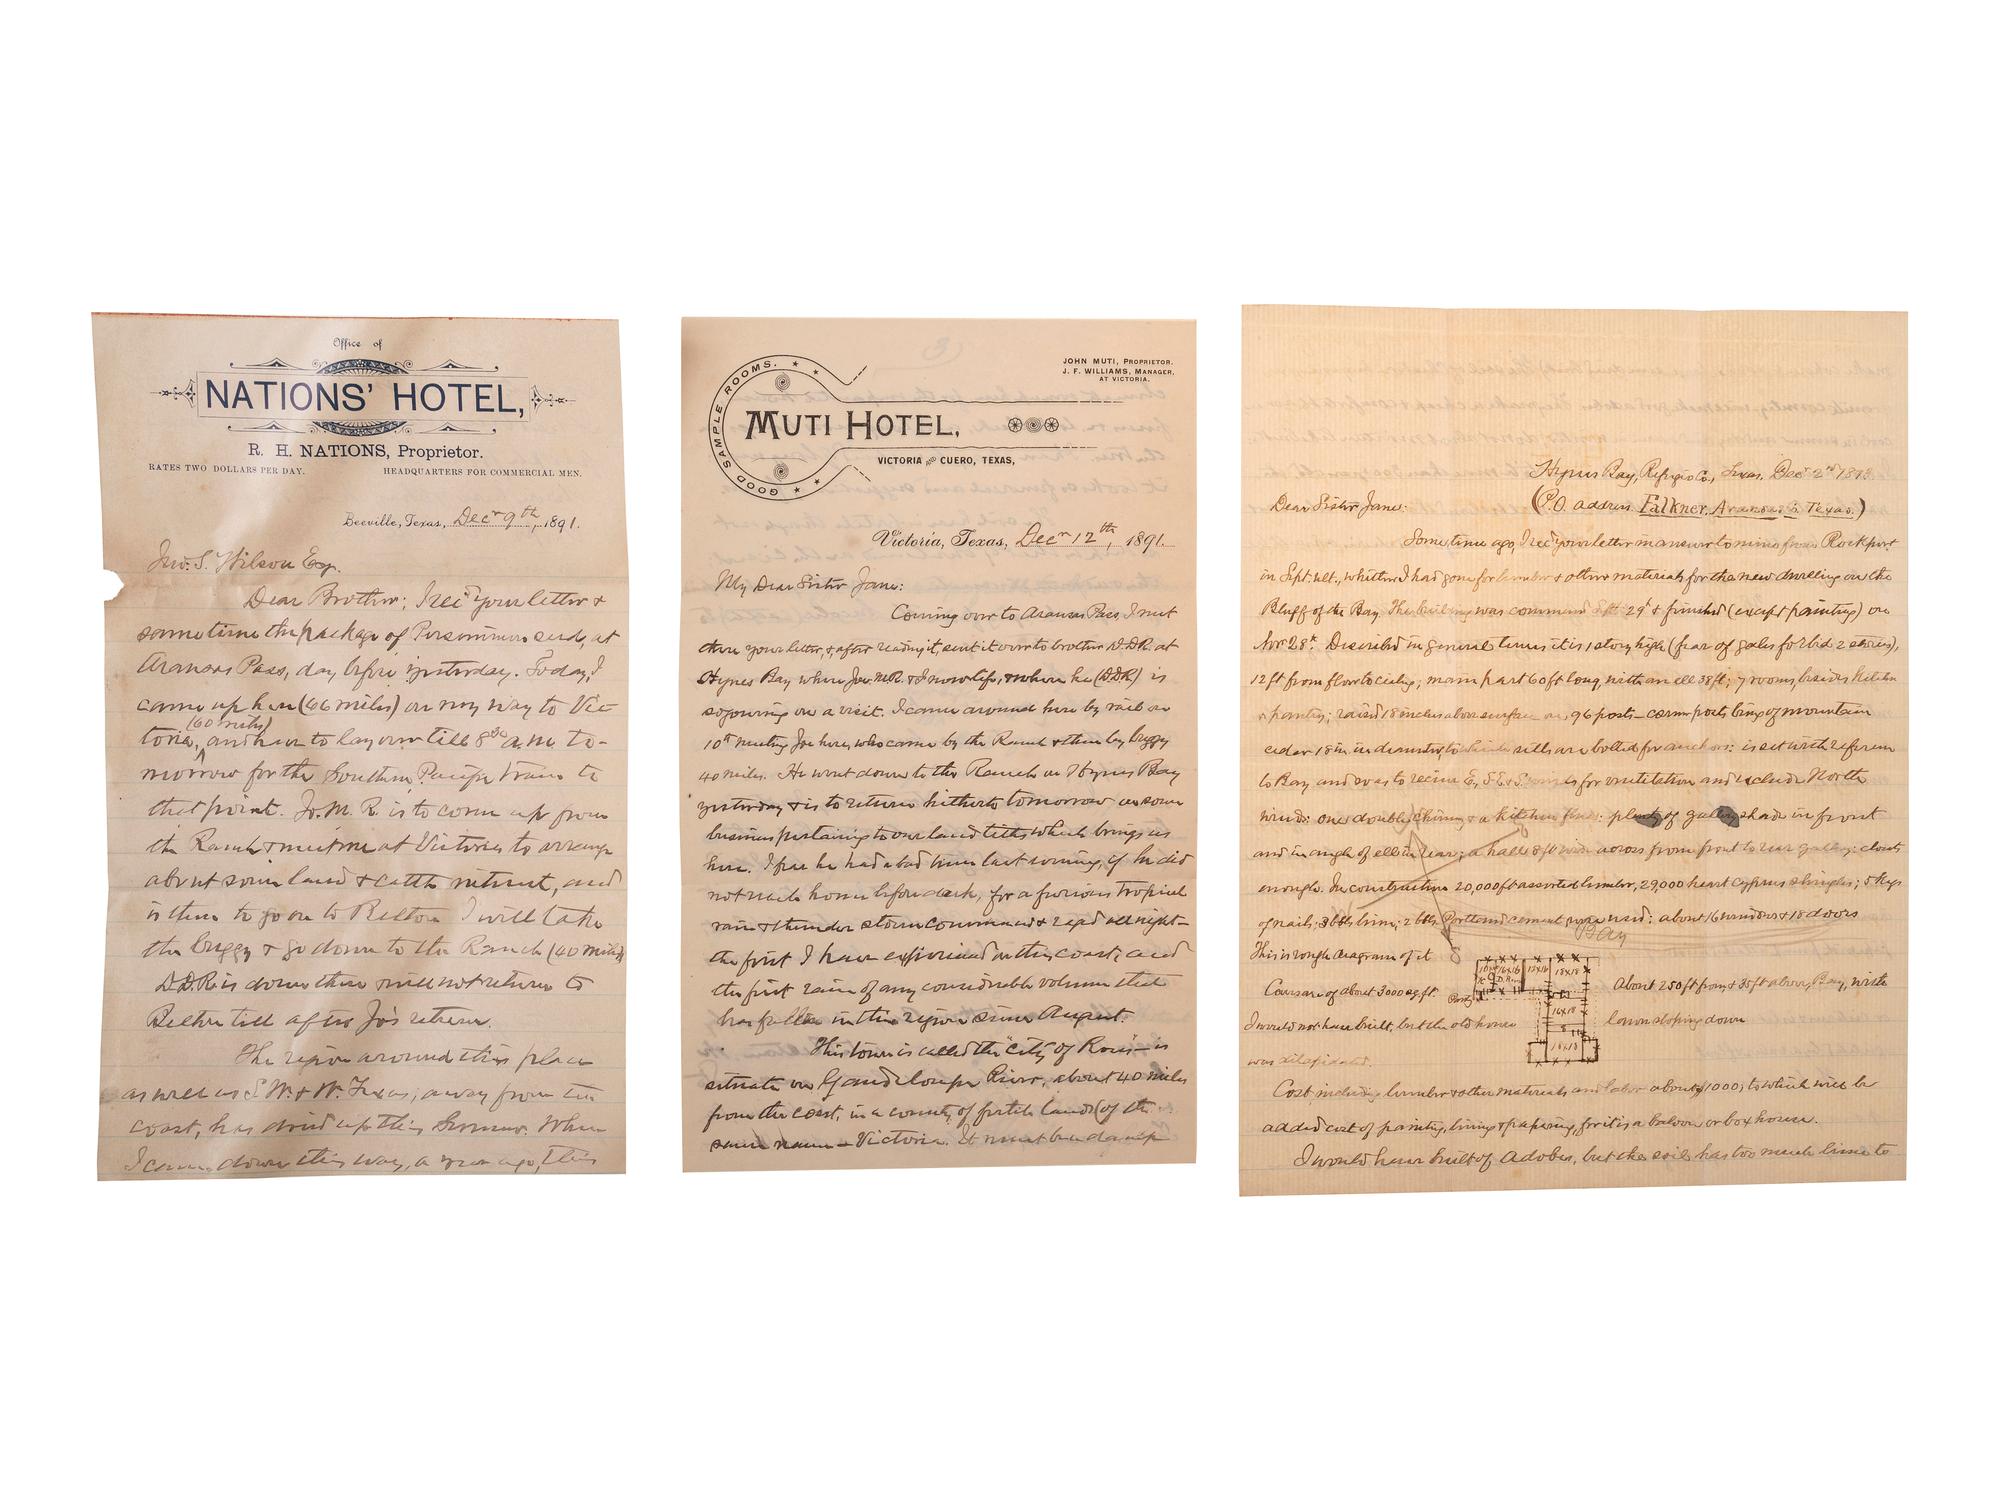 Office of
NATIONS' HOTEL,
R. H. NATIONS, Proprietor.
RATES TWO DOLLARS PER DAY. HEADQUARTERS FOR COMMERCIAL MEN.
Beeville, Texas, Decr 9th, 1891.
Jno. S. Wilson Esq.
Dear Brother; I recd your letter &
sometime the package of Persimmon seed, at
Aransas Pass, day before yesterday. Today, I
came up here (66 miles) on my way to Vic-
(60 miles)
toria, and have to lay over till 8 a.m. to-
morrow for the Southern Pacific train to
that point. Jo. M. R. is to come up from
the Ranch & meet me at Victoria to arrange
about some land & cattle interest, and
is then to go on to Belton I will take
the buggy & go down to the Ranch (40 miles)
D.D.R is down there & will not return to
Belton till after Jo's return.
The region around this place
as well as S.W. & W. Texas, away from the
coast, has dried up this Summer. When
I came down this way, a year ago, this
GOOD SAMPLE ROOMS.
JOHN MUTI, PROPRIETOR.
J. F. WILLIAMS, MANAGER.
AT VICTORIA.
MUTI HOTEL,
VICTORIA AND CUERO, TEXAS,
Victoria, Texas, Decr 12th, 1891.
My Dear Sister Jane:
Coming over to Aransas Pass, I met
there your letter, & after reading it, sent it over to brother D.D.R. at
Hynes Bay where Jo. M.R. & I now live, & where he (D.D.R) is
sojourning on a visit. I came around here by rail on
10th meeting Joe here, who came by the Ranch & then by buggy
40 miles. He went down to the Ranch on Hynes Bay
yesterday & is to return hitherto tomorrow on some
business pertaining to our land titles which brings us
here. I fear he had a bad time last evening, if he did
not reach home before dark, for a furious tropical
rain & thunder storm commenced & raged all night—
the first I have experienced on the coast; and
the first rain of any considerable volume that
has fallen in this region since August.
This town is called the "city of Roses"— is
situate on Guadeloupe River, about 40 miles
from the coast, in a county of fertile lands (of the
same name— Victoria. It must be a damp
Hynes Bay, Refugio Co., Texas, Decr 2nd 1893
Dear Sister Jane: (P.O. address Falkner, Aransas Co. Texas.)
Some time ago, I recd your letter in answer to mine from Rockport
in Sept. ult., whither I had gone for lumber & other materials for the new dwelling on the
Bluff of the Bay. The building was commenced Sept 29th & finished (except painting) on
Nov 28th. Described in general terms it is 1 story high (fear of gales forbid 2 stories),
12 ft from floor to ceiling; main part 60 ft long, with an ell 38 ft; 7 rooms, besides kitchen
& pantry; raised 18 inches above surface on 96 posts— corner posts being of mountain
cedar 18 in. in diameter, to which sills are bolted for anchors: is set with reference
to Bay and so as to receive E, S.E. & S. winds for ventilation and exclude North
winds: one double chimney & a kitchen flue: plenty of gallery shade in front
and in angle of ell in rear; a hall 8 ft wide across from front to rear gallery: closets
enough. In construction 20,000 ft assorted lumber, 29,000 heart cypress shingles; 5 kegs
of nails; 3 bbls lime; 2 bbls Portland cement were used: about 16 windows & 18 doors
Bay
This is rough diagram of it
Coursare of about 3000 sq. ft. About 250 ft from & 35 ft above, Bay, with
I would not have built, but the old house lawn sloping down
was dilapidated.
16x16 D.R. 18x18
16x18
18x18
Cost, including lumber & other materials and labor about $1000; to which will be
added cost of painting, lining & papering, for it is a baloon or box house.
I would have built of Adobes, but the soil has too much lime to